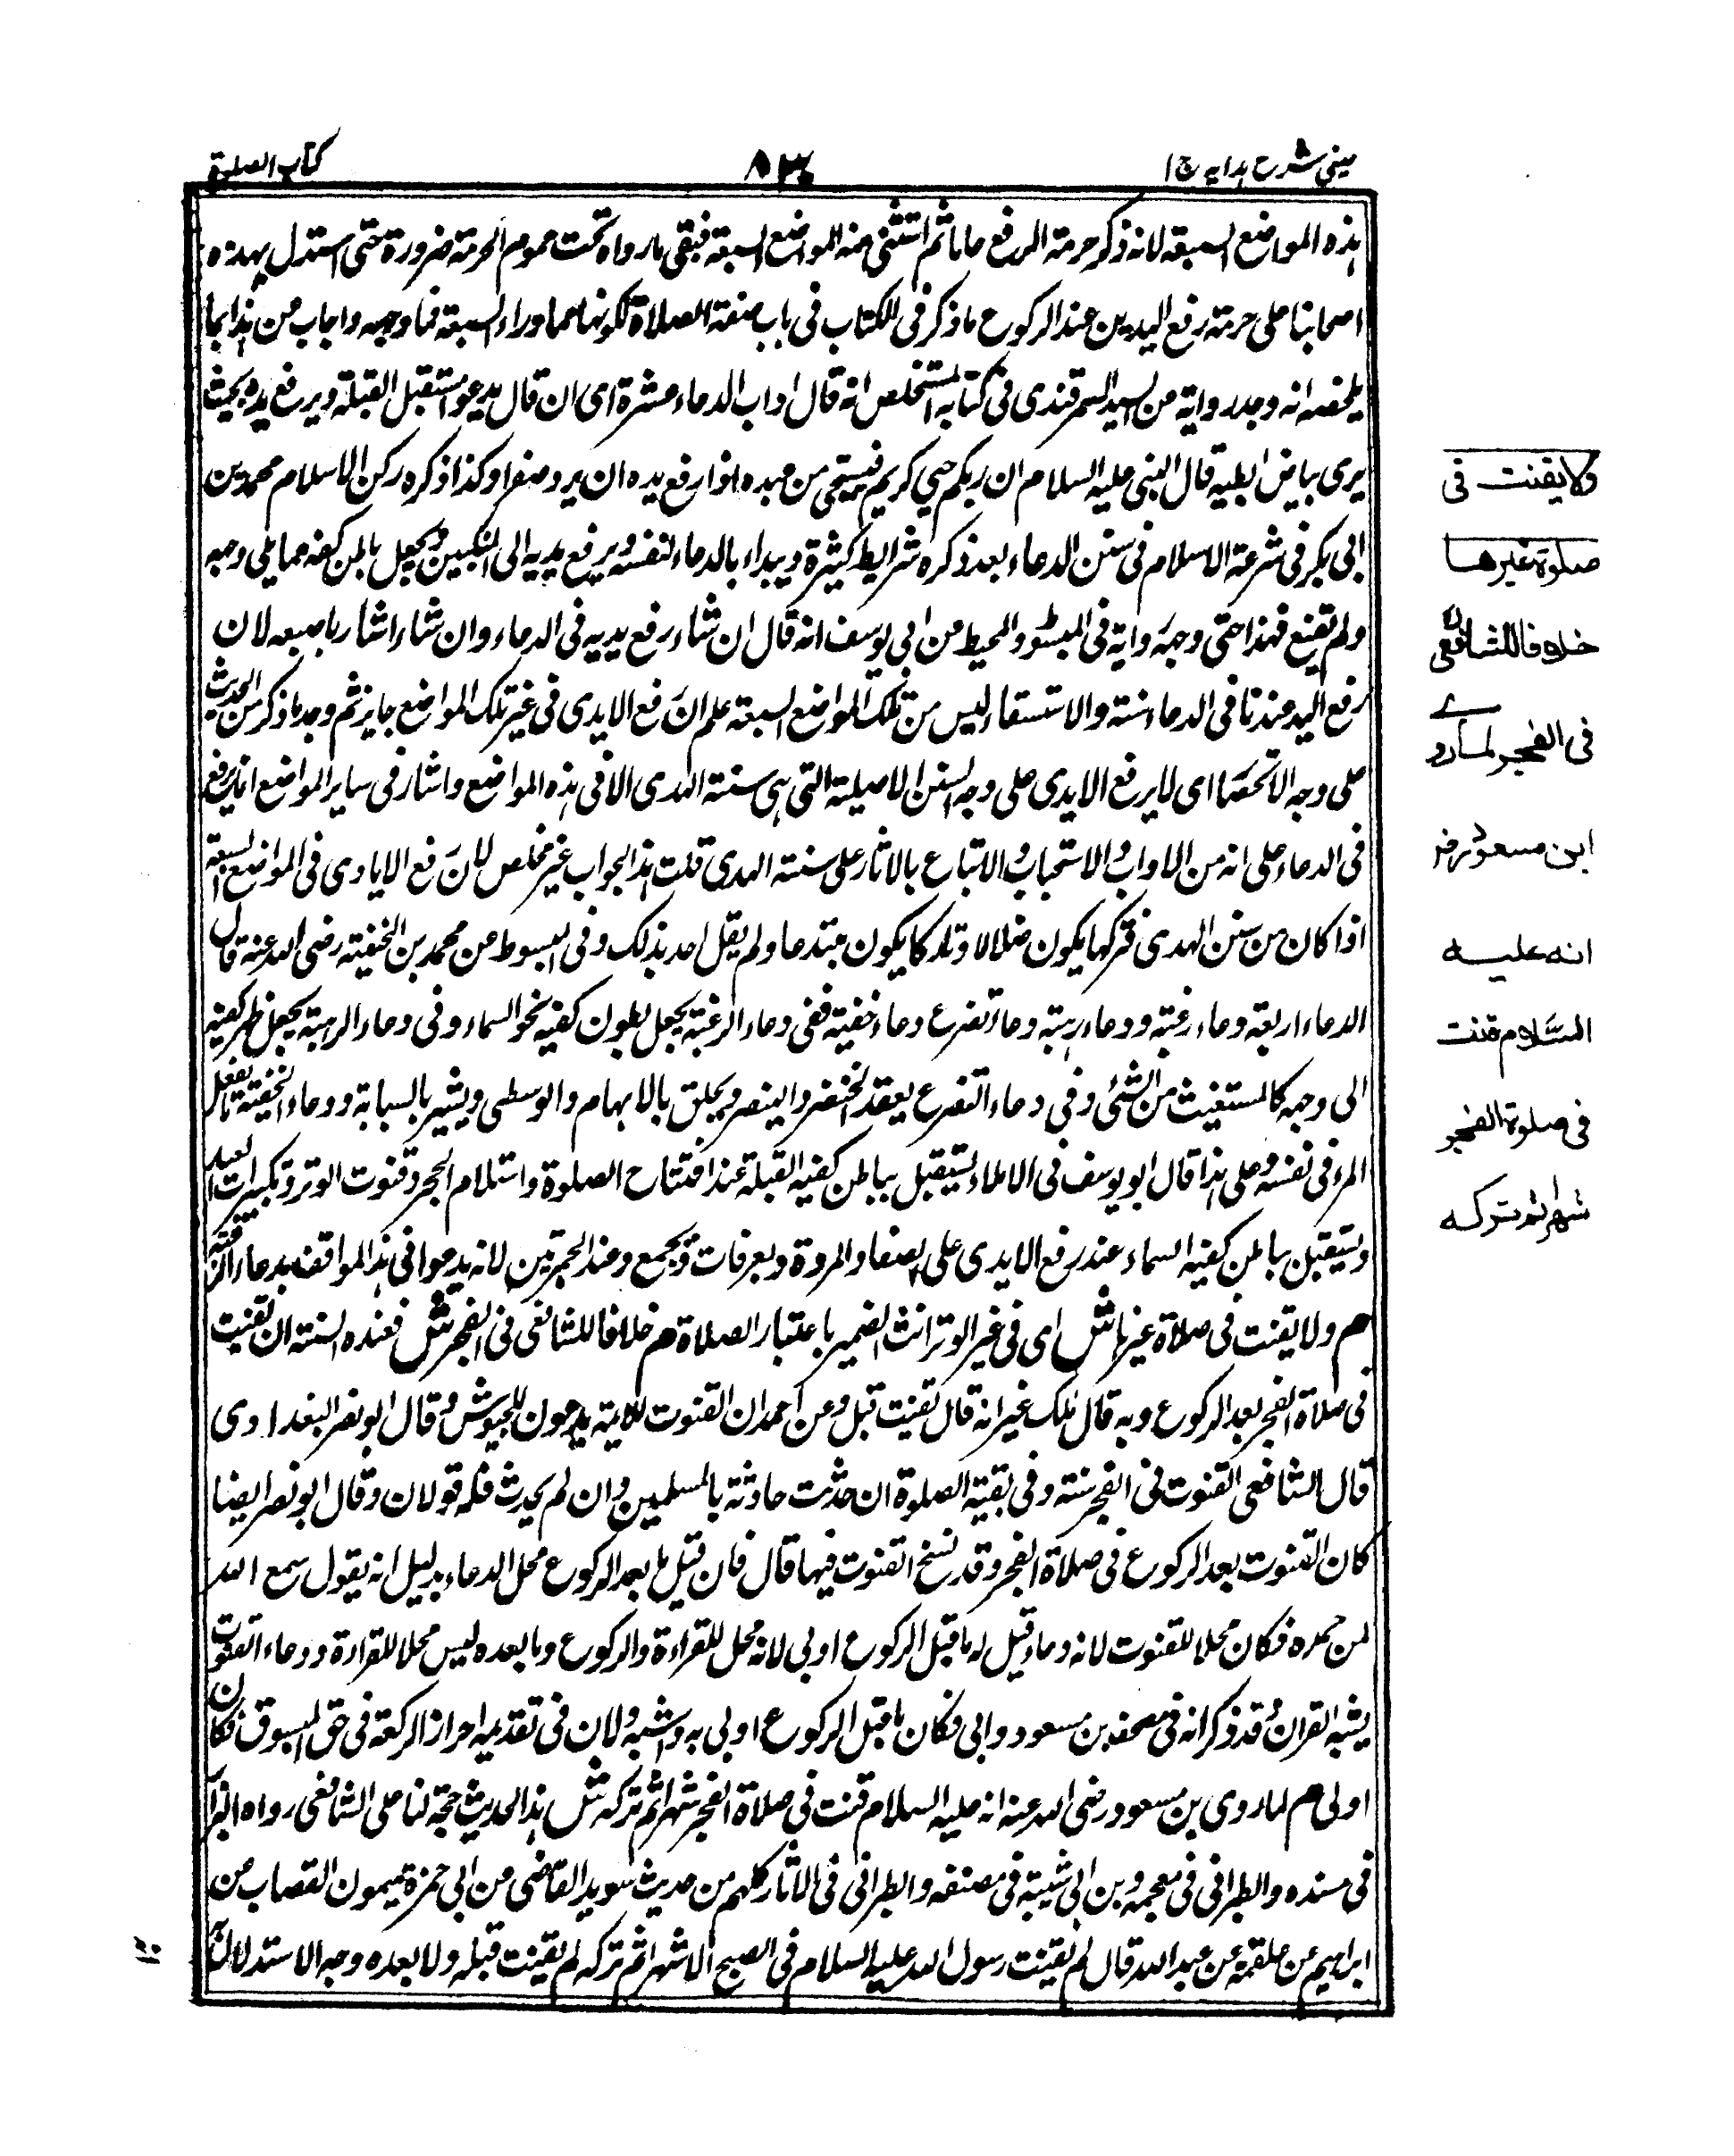 عينى شرح هدايه ج ١
٨٣٠
كتاب الصلوة
هذه المواضع السبعة لانه ذكر حرمة الرفع عاما ثم استثنى منه المواضع السبعة فبقى ما رواه تحت عموم الحرمة ضرورة حتى استدل بهذه
اصحابنا على حرمة رفع اليدين عند الركوع ما ذكر فى الكتاب فى باب صفة الصلاة لكونها مما وراء السبعة فما وجهه واجاب عن هذا بما
يلخصه انه وجد رواية من السيد السمرقندى فى كتابه المستخلص انه قال اداب الدعاء عشرة اى ان قال يدعو مستقبل القبلة ويرفع يديه بحيث
يرى بياض ابطيه قال النبى عليه السلام ان ربكم حيي كريم فيستحي من عبده اذا رفع يده ان يرد صفرا وكذا ذكره ركن الاسلام محمد بن
ابى بكر فى شرعة الاسلام فى سنن الدعاء بعد ذكره شرايط كثيرة ويبداء بالدعاء لنفسه ويرفع يديه الى المنكبين ويجعل باطن كفه مما يلى وجهه
ولم يقنع فهذا حتى وجد رواية فى المبسوط والمحيط من ابى يوسف انه قال ان شاء رفع يديه فى الدعاء وان شاء اشار باصبعه لان
رفع اليد عندنا فى الدعاء سنة والاستسقاء ليس من تلك المواضع السبعة علم ان رفع الايدى فى غير تلك المواضع جايز ثم وجد ما ذكر من الحديث
على وجه الانحصار اى لا يرفع الايدى على وجه السنن الاصلية التى هى سنة الهدى الا فى هذه المواضع واشار فى ساير المواضع انما يرفع
فى الدعاء على انه من الاداب والاستحباب والاتباع بالاثار على سنة الهدى قلت هذا الجواب غير مخلص لان رفع الايادى فى المواضع السبعة
اذا كان من سنن الهدى فتركها يكون ضلالا وتاركا يكون مبتدعا ولم يقل احد بذلك وفى المبسوط عن محمد بن الحنفية رضى الله عنه قال
الدعاء اربعة دعاء رغبة ودعاء رهبة ودعاء تضرع دعاء خفية ففى دعاء الرغبة يجعل بطون كفيه نحو السماء وفى دعاء الرهبة يجعل ظهر كفيه
الى وجهه كالمستغيث من الشئ وفى دعاء التضرع يعقد الخنصر والبنصر ويحلق بالابهام والوسطى ويشير بالسبابة ودعاء الخفية ما يفعل
المرء فى نفسه وعلى هذا قال ابو يوسف فى الاملاء يستقبل بباطن كفيه القبلة عند افتتاح الصلوة واستلام الحجر وقنوت الوتر وتكبيرات العيد
ويستقبل باطن كفيه السماء عند رفع الايدى على الصفا والمروة وبعرفات وبجمع وعند الجمرتين لانه يدعوا فى هذا المواقف بدعاء الرغبة
م ولا يقنت فى صلاة غيرها ش اى فى غير الوتر انث الضمير باعتبار الصلاة م خلافا للشافعى فى الفجر ش فعنده السنة ان يقنت
فى صلاة الفجر بعد الركوع وبه قال مالك غير انه قال يقنت قبل وعن احمد ان القنوت للايمة يدعون للجيوش وقال ابو نصر البغدادى
قال الشافعى القنوت فى الفجر سنة وفى بقية الصلوة ان حدثت حادثة بالمسلمين وان لم يحدث فله قولان وقال ابو نصر ايضا
كان القنوت بعد الركوع فى صلاة الفجر وقد نسخ القنوت فيها قال فان قيل ما بعد الركوع محل الدعاء بدليل انه يقول سمع الله
لمن حمده فكان محلا للقنوت لانه دعاء قيل له ما قبل الركوع اولى لانه محل للقراءة والركوع وما بعده ليس محلا للقراءة ودعاء القنوت
يشبه القران وقد ذكر انه فى مصحف بن مسعود وابى فكان ما قبل الركوع اولى به واشبه ولان فى تقديمه احراز الركعة فى حق المسبوق فكان
اولى م لما روى بن مسعود رضى الله عنه انه عليه السلام قنت فى صلاة الفجر شهرا ثم تركه ش هذا الحديث حجة لنا على الشافعى رواه البزار
فى مسنده والطبرانى فى معجمه وبن ابى شيبة فى مصنفه والطبرانى فى الاثار كلهم من حديث سويد القاضى من ابى حمزة ميمون القصاب عن
ابراهيم عن علقمة عن عبد الله قال لم يقنت رسول الله عليه السلام فى الصبح الا شهرا ثم تركه لم يقنت قبله ولا بعده وجه الاستدلال
ولا يقنت فى
صلوة غيرها
خلافا للشافعى
فى الفجر لما روى
ابن مسعود رض
انه عليه
السلام قنت
فى صلوة الفجر
شهرا ثم تركه